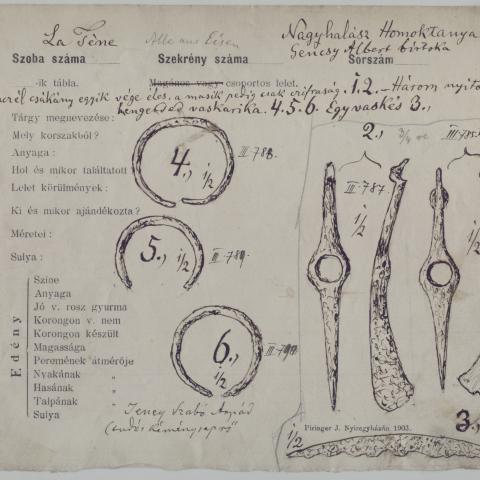 La Tène
Alle aus Eisen
Nagyhalász Homoktanya
Gencsy Albert birtoka
Szoba száma
Szekrény száma
Sorszám
-ik tábla.
Magános vagy csoportos lelet.
csákány egyik vége éles, a másik pedig csak czifraság. 1. 2. – Három nyitott
hengerded vaskarika. 4. 5. 6. Egy vaskés 3.,
Tárgy megnevezése:
Mely korszakból?
Anyaga:
Hol és mikor találtatott
Lelet körülmények:
Ki és mikor ajándékozta?
Méretei:
Sulya:
Edény
Szine
Anyaga
Jó v. rosz gyurma
Korongon v. nem
Korongon készült
Magassága
Peremének átmérője
Nyakának "
Hasának "
Talpának "
Sulya "
4., 1/2
III. 788.
5., 1/2
III. 789.
6., 1/2
2.,
III. 787.
1/2
1/2
Jeney Szabó Árpád
Piringer J. Nyiregyházán 1903.
1/2
3.,